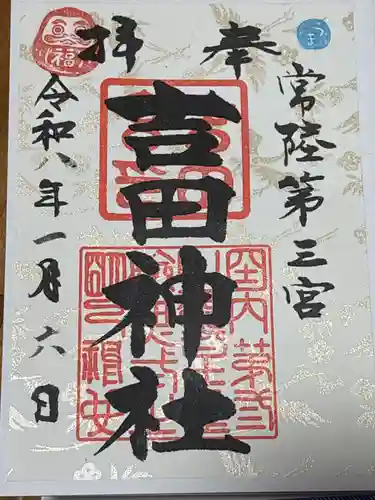 奉拝
常陸第三宮
吉田神社
令和八年一月六日
福